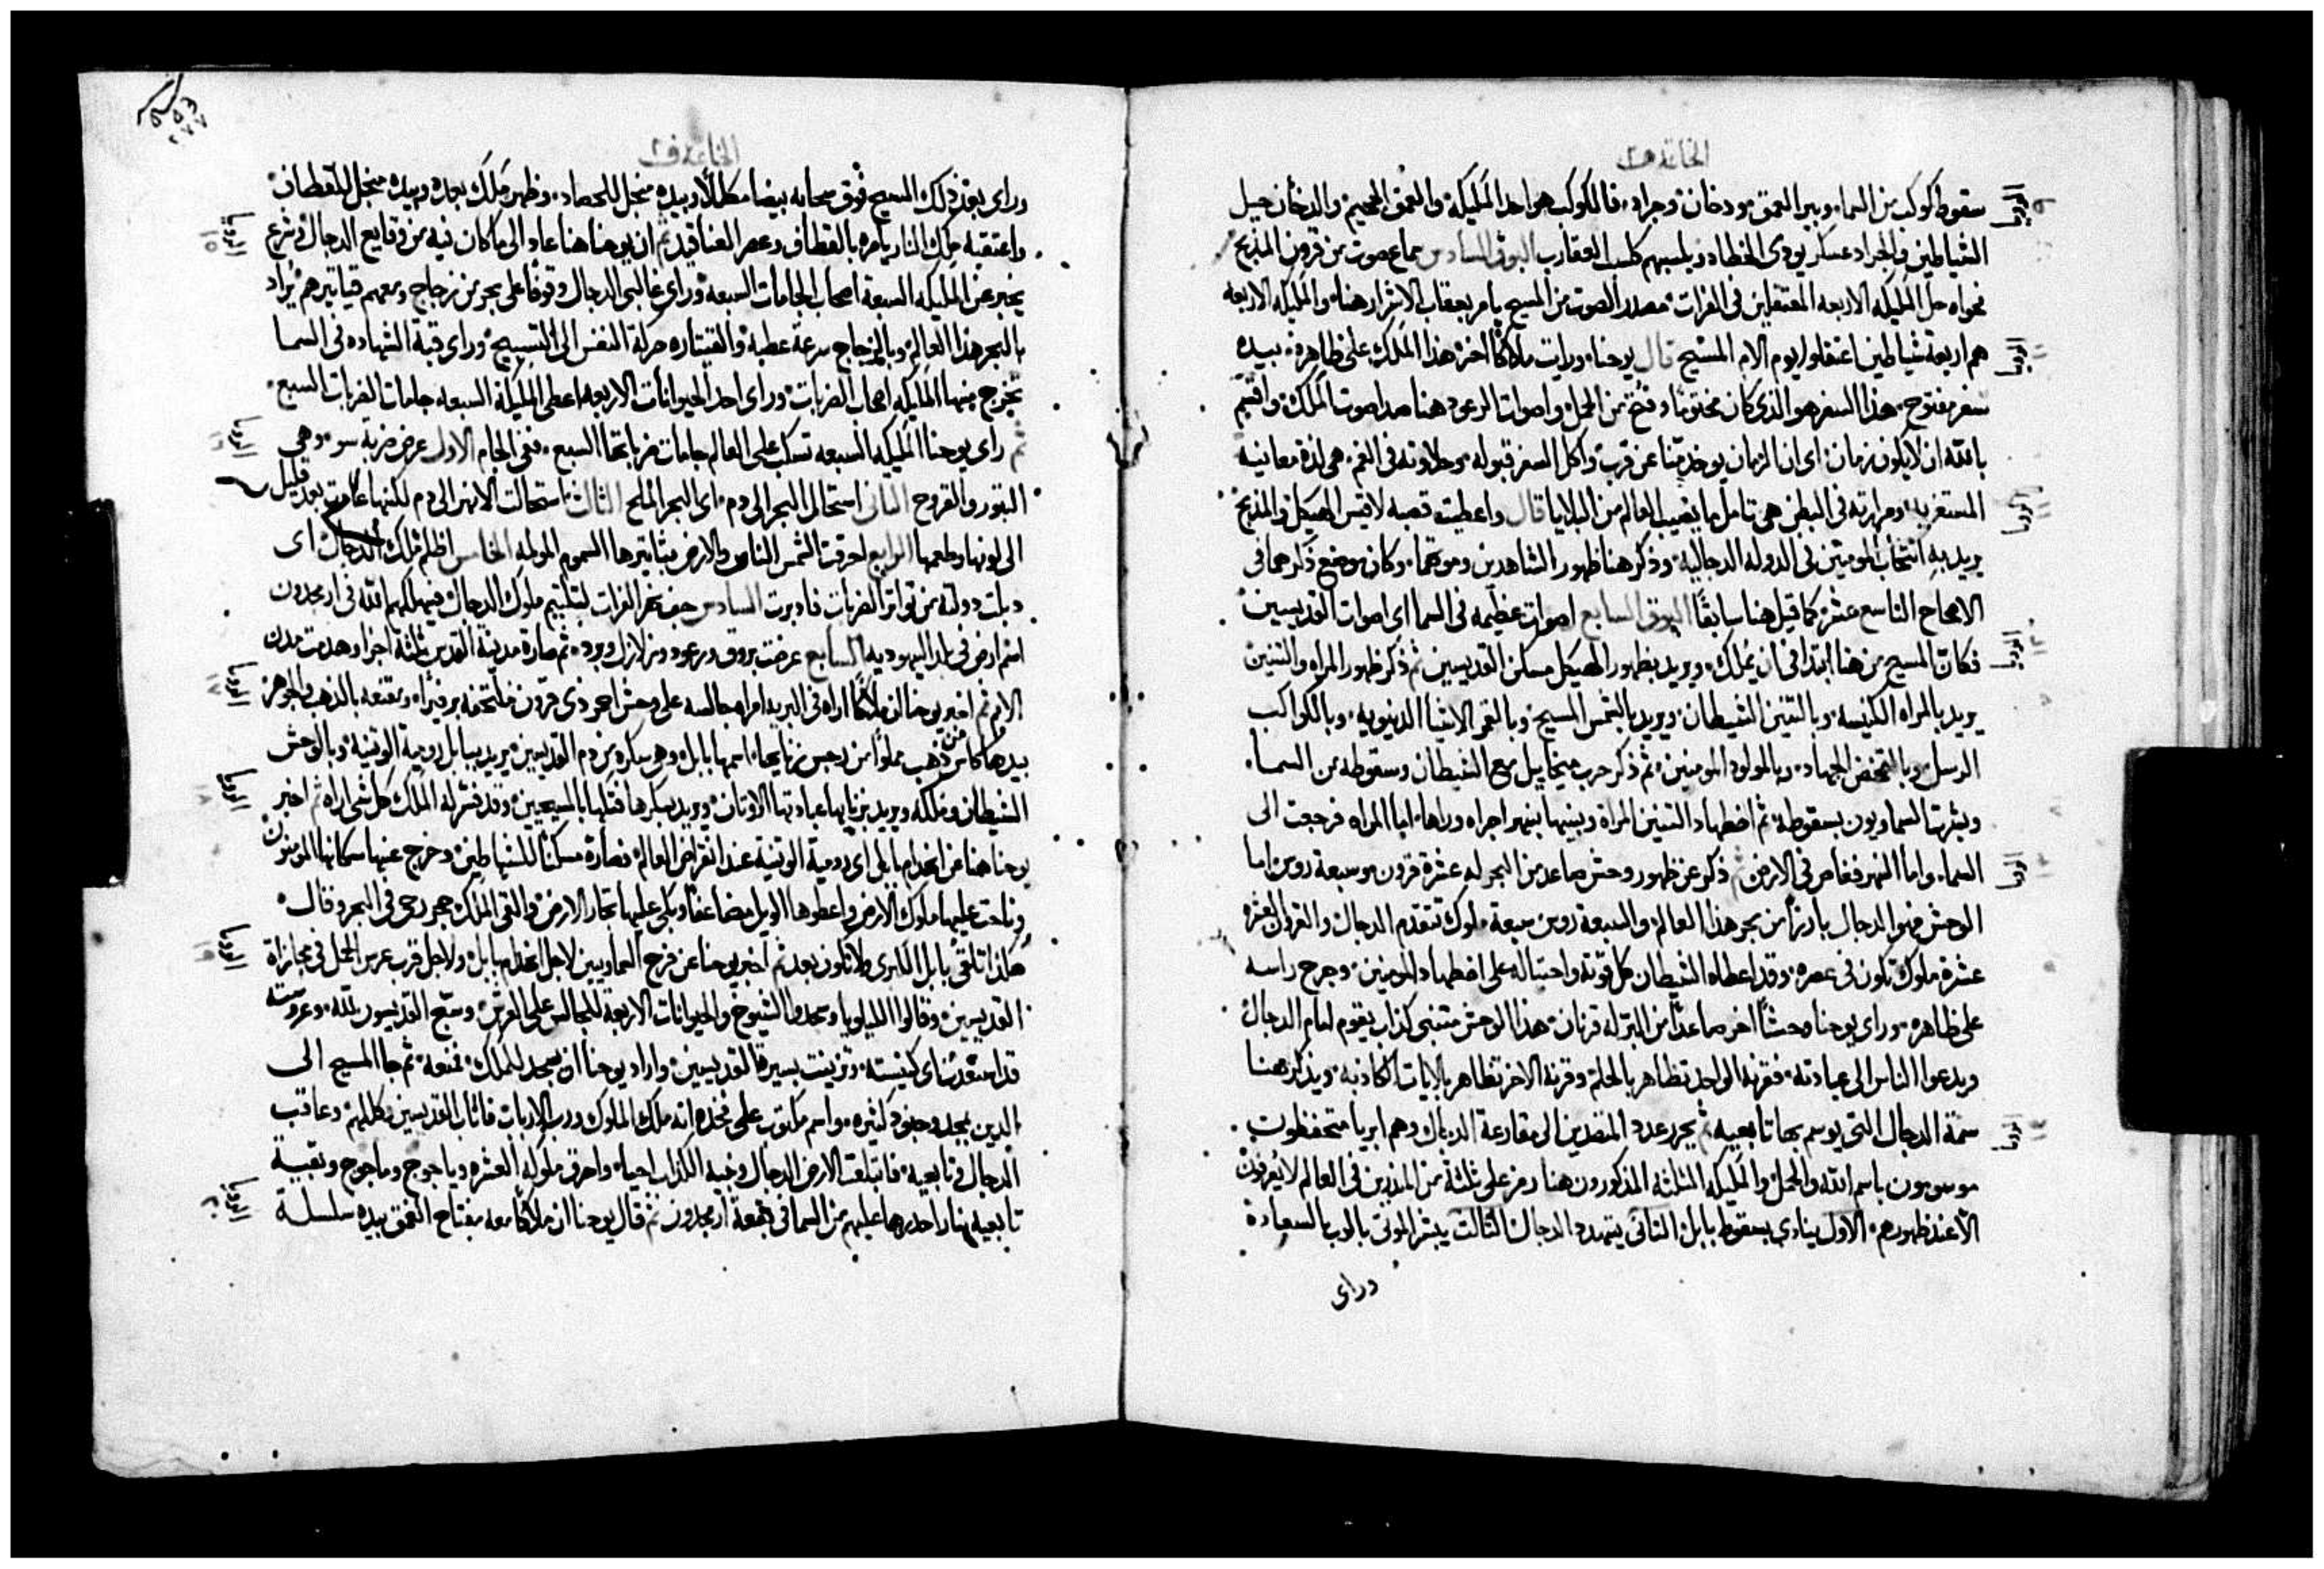 الخاتمة ف٢
سقوط كوكب من السماء وبير العمق ودخان وجراد فالكوكب هو احد المليكه والعمق الجحيم والدخان جيل
الشياطين والجراد عسكر يودي الخطاه ويلسبهم كلسب العقارب البوق السادس سماع صوت من قرون المذبح
فحواه حل المليكه الاربعه المعتقلين في الفرات مصدر الصوت من المسيح يامر بعقاب الاشرار هنا والمليكه الاربعه
هم اربعة شياطين اعتقلوا يوم الام المسيح قال يوحنا ورايت ملاكاً اخر هذا الملك على ظاهره بيده
سفر مفتوح هذا السفر هو الذي كان مختوماً وفتح من الحمل واصوات الرعود هنا صدا صوت الملك واقسم
بالله ان لا يكون زمان اي ان الزمان يوخذ منا عن قرب واكل السفر قبوله وحلاوته في الفم هي لذة معانيه
المستغربه ومرارته في البطن هي تامل ما يصيب العالم من البلايا قال واعطيت قصبه لاقيس الهيكل والمذبح
يريد به انتخاب المومنين في الدوله الدجاليه وذكر هنا ظهور الشاهدين وموتهما وكان موضع ذكرهما في
الاصحاح التاسع عشر كما قيل هنا سابقاً البوق السابع اصوات عظيمه في السما اي اصوات القديسين
فكان المسيح من هنا ابتدا في ان يملك ويريد بظهور الهيكل مسكن القديسين ثم ذكر ظهور المراه والتنين
يريد بالمراه الكنيسه وبالتنين الشيطان ويريد بالشمس المسيح وبالقمر الاشيا الدنيويه وبالكواكب
الرسل وبالتمخض الجهاد وبالمولود المومنين ثم ذكر حرب ميخاييل مع الشيطان وسقوطه من السماء
وبشرتها السماويون بسقوطه ثم اضطهاد التنين المراة وبنيها بنهر اجراه وراها اما المراه فرجعت الى
السماء واما النهر فغاص في الارض ثم ذكر عن ظهور وحش صاعد من البحر له عشرة قرون وسبعة روس اما
الوحش فهو الدجال بارزاً من بحر هذا العالم والسبعة روس سبعة ملوك تتقدم الدجال والقرون العشره
عشرة ملوك تكون في عصره وقد اعطاه الشيطان كل قوته واحتياله على اضطهاد المومنين وجرح راسه
على ظاهره وراى يوحنا وحشاً اخر صاعداً من البر له قرنان هذا الوحش متنبي كذاب يقوم امام الدجال
ويدعوا الناس الى عبادته فقرنه الواحد تظاهر بالحلم وقرنه الاخر تظاهر بالايات الكاذبه ويذكر هنا
سمة الدجال التي يوسم بها تابعيه ثم يحرر عدد المتصدين الى مقارعة الدجال وهم ابريا متحفظون
موسومون باسم الله والحمل والمليكه الثلثه المذكورون هنا رمز على ثلثة من المنذرين في العالم لا يعرفون
الا عند ظهورهم الاول ينادي بسقوط بابل الثاني يتهدد الدجال الثالث يبشر الموتى بالرب السعادة
وراى
الرويا
الرويا
الرويا
الرويا
الرويا
الرويا
الخاتمة ف٢
وراى بعد ذلك المسيح فوق سحابه بيضا مكللاً وبيده منجل للحصاد وظهر ملك بعده وبيده منجل للقطاف
واعتقبه ملك النار يامره بالقطاف وعصر العناقيد ثم ان يوحنا هنا عاد الى ما كان فيه من وقايع الدجال وشرع
يخبر عن المليكه السبعة اصحاب الجامات السبعه وراى غالبي الدجال وقوفاً على بحر من زجاج ومعهم قياثيرهم يراد
بالبحر هذا العالم وبالزجاج سرعة عطبه والقيثاره حركة النفس الى التسبيح وراى قبة الشهاده في السما
يخرج منها المليكه اصحاب الضربات وراى احد الحيوانات الاربعه اعطى المليكة السبعه جامات الضربات السبع
ثم راى يوحنا المليكه السبعه تسكب على العالم جامات ضرباتها السبع ففي الجام الاول عرض ضربة سو وهي
البثور والقروح الثاني استحال البحر الى دم اي البحر الملح الثالث استحالت الانهر الى دم لكنها عادت بعد قليل
الى لونها وطعمها الرابع احرقت الشمس الناس والارض بتاثيرها السموم المولمه الخامس اظلم ملك الدجال اي
دبلت دولته من تواتر الضربات فادبرت السادس جف نهر الفرات لتلتيم ملوك الدجال فيهلكهم الله في ارمجدون
اسم ارض في بلد اليهوديه السابع عرضت بروق ورعود وزلازل وبرد ثم صارة مدينة القدس ثلثة اجزا وهدمت مدن
الامم ثم اخبر يوحنا ان ملاكاً اراه في البريه امراه جالسه على وحش احمر ذي قرون ملتحفه برفيراً ومقنعه بالذهب والجوهر
بيدها كاس من ذهب مملواً من رجس زنايها اسمها بابل وهي سكره من دم القديسين يريد ببابل رومية الوثنية وبالوحش
الشيطان وملكه ويريد بزنايها عبادتها الاوثان ويريد بسكرها قتلها بالمسيحيين وقد فسر له الملك كل شي اراه ثم اخبر
يوحنا هنا عن انهدام بابل اي رومية الوثنية عند انقراض العالم فصارة مسكناً للشياطين وخرج عنها سكانها المومنون
وناحت عليها ملوك الارض واعطوها الويل مضاعفاً وبكى عليها تجار الارض والقى الملك حجر رحى في البحر وقال
هكذا تلقى بابل الكبرى ولا تكون بعد ثم اخبر يوحنا عن فرح السماويين لاجل انهدام بابل ولاجل قرب عرس الحمل في مجازاة
القديسين وقالوا الليلويا وسجدوا الشيوخ والحيوانات الاربعة للجالس على العرش وسبح القديسون لله وعروسته
قد استعدت اي كنيسته وتزينت بسيرة القديسين واراد يوحنا ان يسجد للملك فمنعه ثم جا المسيح الى
الدين بمجد وجنود كثيره واسم مكتوب على فخذه انه ملك الملوك ورب الارباب فاثاب القديسين بكللهم وعاقب
الدجال وتابعيه فابتلعت الارض الدجال ونبيه الكذاب احياء واحرق ملوكه العشره وياجوج وماجوج وبقية
تابعيه بنار احدرها عليهم من السما في بقعة ارمجدون ثم قال يوحنا ان ملاكاً معه مفتاح العمق بيده سلسلة
الرويا ١٥
الرويا ١٦
الرويا ١٧
الرويا ١٨
الرويا ١٩
الرويا ٢٠